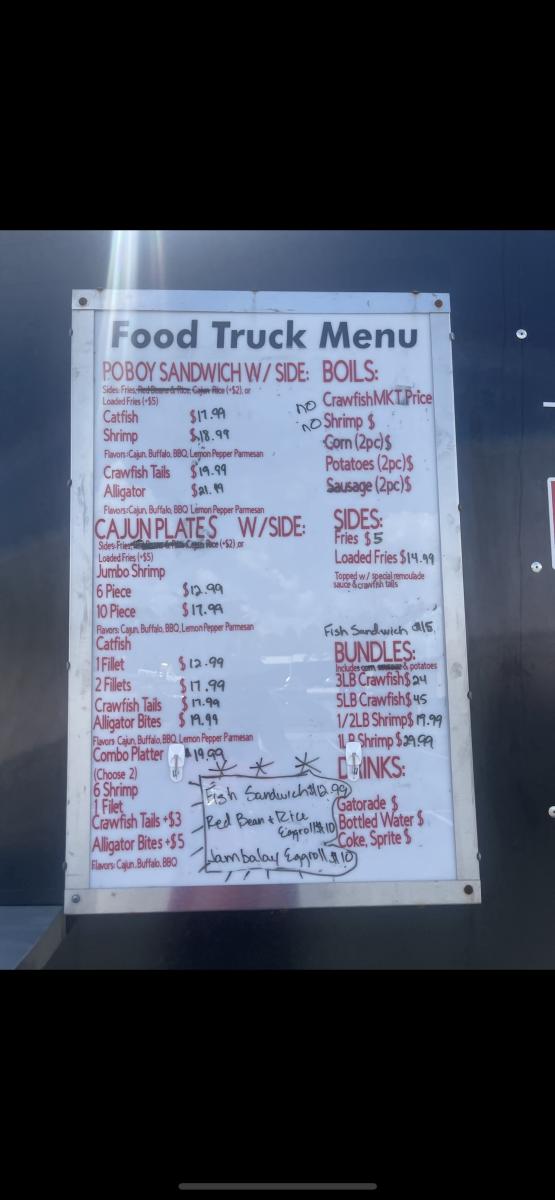 Food Truck Menu
POBOY SANDWICH W/ SIDE:
Sides: Fries, Red Beans & Rice, Cajun Rice (+$2), or
Loaded Fries (+$5)
Catfish $17.99
Shrimp $18.99
Flavors: Cajun, Buffalo, BBQ, Lemon Pepper Parmesan
Crawfish Tails $19.99
Alligator $21.99
Flavors: Cajun, Buffalo, BBQ, Lemon Pepper Parmesan
CAJUN PLATES W/SIDE:
Sides: Fries, Cajun Rice (+$2), or
Loaded Fries (+$5)
Jumbo Shrimp
6 Piece $12.99
10 Piece $17.99
Flavors: Cajun, Buffalo, BBQ, Lemon Pepper Parmesan
Catfish
1 Fillet $12.99
2 Fillets $17.99
Crawfish Tails $17.99
Alligator Bites $19.99
Flavors: Cajun, Buffalo, BBQ, Lemon Pepper Parmesan
Combo Platter $19.99
(Choose 2)
6 Shrimp
1 Filet
Crawfish Tails +$3
Alligator Bites +$5
Flavors: Cajun, Buffalo, BBQ
BOILS:
no Crawfish MKT Price
no Shrimp $
Corn (2pc)$
Potatoes (2pc)$
Sausage (2pc)$
SIDES:
Fries $5
Loaded Fries $14.99
Topped w/ special remoulade
sauce & crawfish tails
Fish Sandwich $15
BUNDLES:
Includes corn, sausage & potatoes
3LB Crawfish $24
5LB Crawfish $45
1/2LB Shrimp $17.99
1LB Shrimp $29.99
DRINKS:
Gatorade $
Bottled Water $
Coke, Sprite $
Fish Sandwich $12.99
Red Bean + Rice
Eggroll $10
Jambalay Eggroll $10